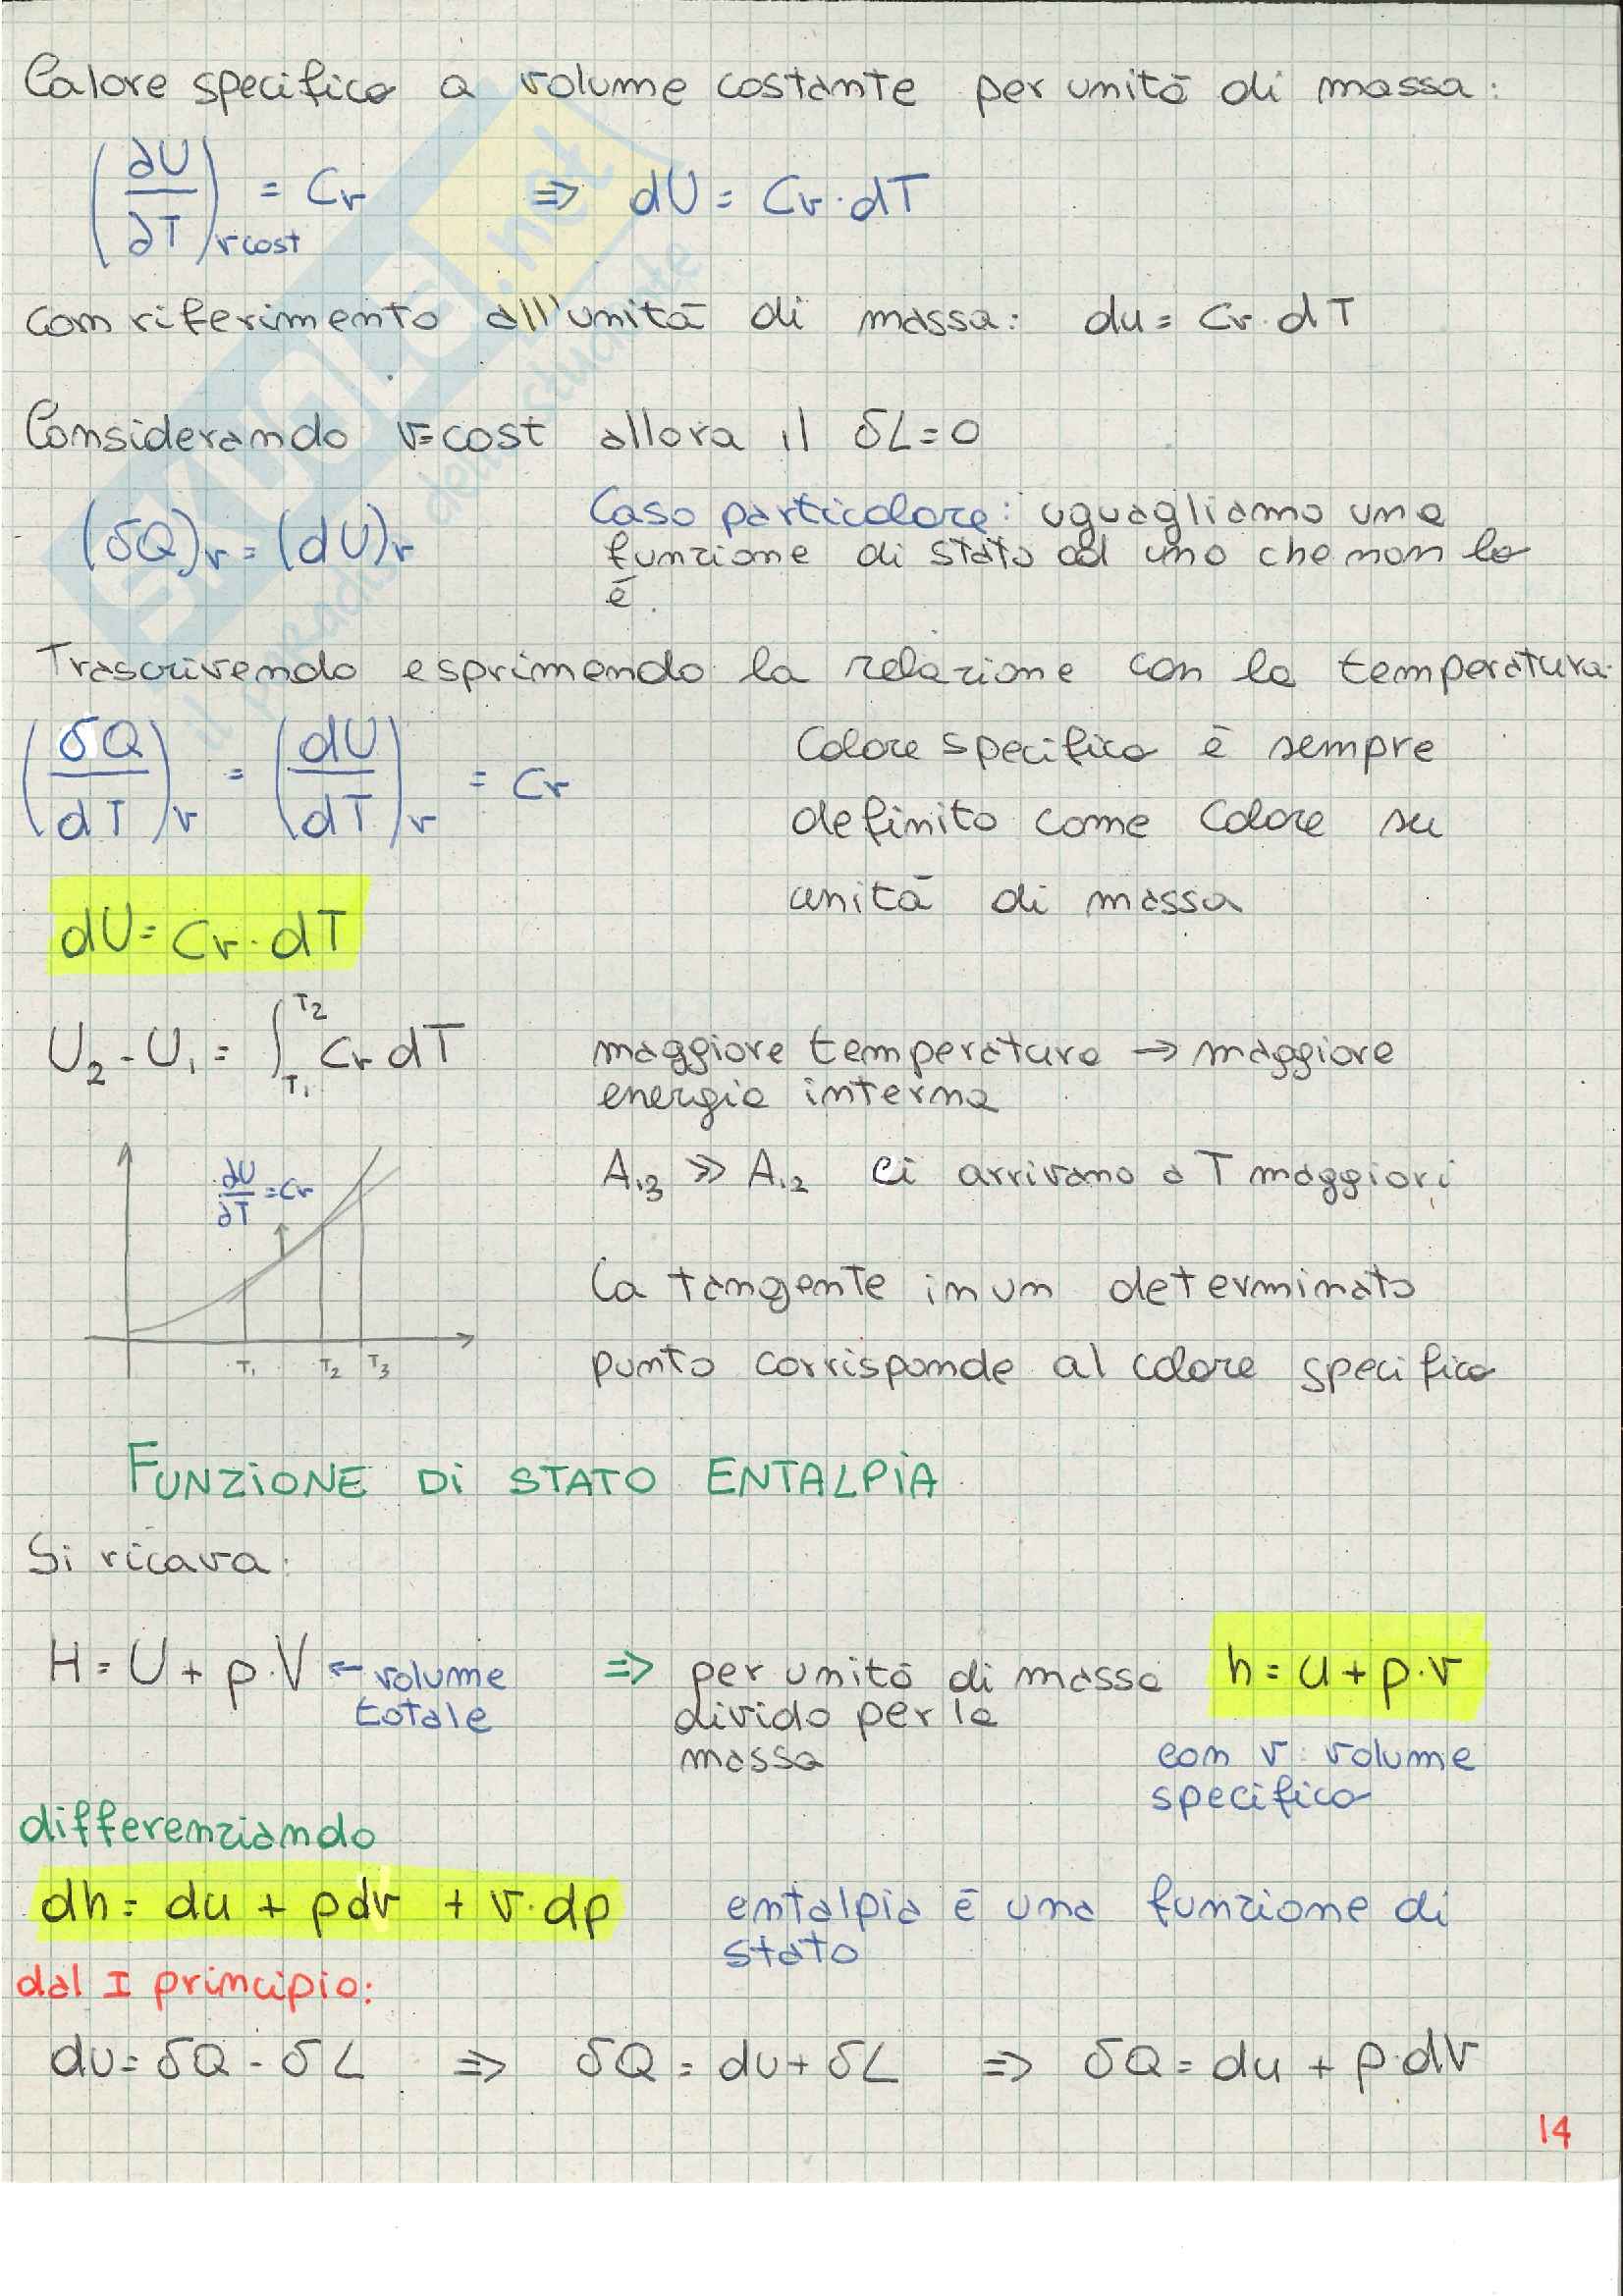 Calore specifico a volume costante per unità di massa:
(∂U/∂T)v cost = Cv ⇒ dU = Cv·dT
con riferimento all'unità di massa: du = Cv·dT
Considerando v=cost allora il δL=0
(δQ)v = (dU)v
Caso particolare: uguagliamo una
funzione di stato ad uno che non lo
è.
Trascrivendo esprimendo la relazione con la temperatura.
(δQ/dT)v = (dU/dT)v = Cv
Calore specifico è sempre
definito come calore su
unità di massa
dU = Cv·dT
U2 - U1 = ∫T1T2 Cv dT
maggiore temperatura → maggiore
energia interna
∂U/∂T = Cv
T1 T2 T3
A13 ≫ A12 ci arrivano a T maggiori
La tangente in un determinato
punto corrisponde al calore specifico
FUNZIONE DI STATO ENTALPIA
Si ricava:
H = U + p·V ← volume
totale
⇒ per unità di massa
divido per la
massa
h = u + p·v
con v: volume
specifico
differenziando
dh = du + pdv + v·dp
entalpia è una funzione di
stato
dal I principio:
du = δQ - δL ⇒ δQ = du + δL ⇒ δQ = du + p·dv
14
SKUOLA.net
il paradiso dello studente